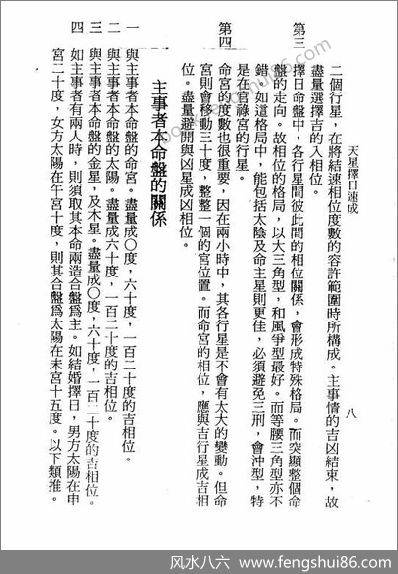 天星擇日速成
八
二個行星，在將結速相位度數的容許範圍時所構成。主事情的吉凶結束，故
盡量選擇吉的入相位。
第三
擇日命盤中，各行星間彼此間的相位關係，會形成特殊格局。而突顯整個命
盤的走向。故相位的格局，以大三角型，和風爭型最好。而等腰三角型亦不
錯。如這格局中，能包括太陰及命主星則更佳，必須避免三刑，會沖型，特
是在官祿宮的行星。
第四
命宮的度數也很重要，因在兩小時中，其各行星是不會有太大的變動。但命
宮則會移動三十度，整整一個的宮位置。而命宮的相位，應與吉行星成吉相
位。盡量避開與凶星成凶相位。
主事者本命盤的關係
一　與主事者本命盤的命宮。盡量成〇度，六十度，一百二十度的吉相位。
二　與主事者本命盤的太陽。盡量成六十度，一百二十度的吉相位。
三　與主事者本命盤的金星，及木星。盡量成〇度，六十度，一百二十度的吉相位。
四　如主事者有兩人時，則須取其本命兩造合盤爲主。如結婚擇日，男方太陽在申
宮二十度，女方太陽在午宮十度，則其合盤爲太陽在未宮十五度。以下類推。
风水八六　www.fengshui86.com